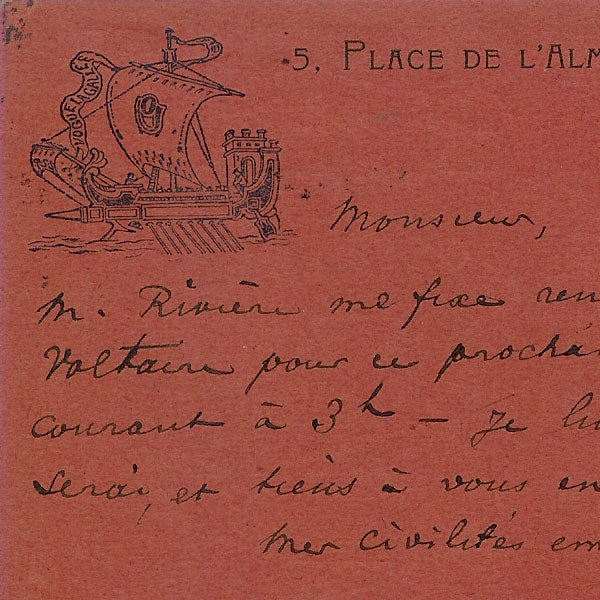 VOGUE LA GALÈRE
5, PLACE DE L'ALM
Monsieur,
M. Rivière me fixe ren
Voltaire pour ce procha
courant à 3h – Je lu
serai, et tiens à vous en
Mes civilités em